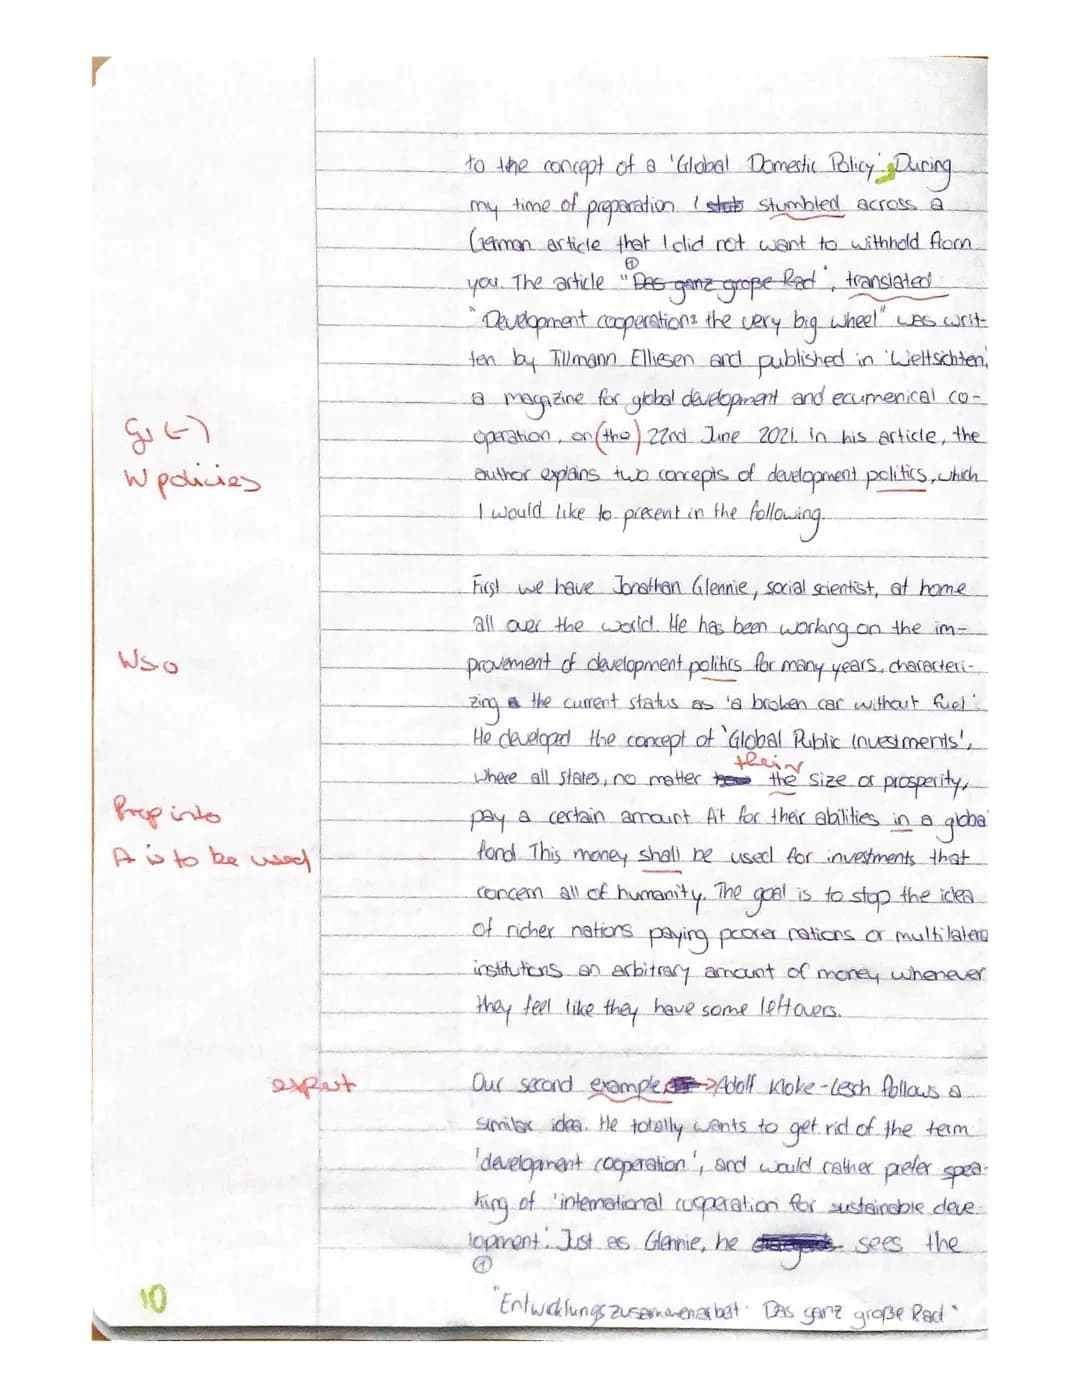 to the concept of a 'Global Domestic Policy'. During
my time of preparation I stumbled across a
German article that I did not want to withhold from
①
you. The article "Das ganz große Rad", translated
"Development cooperation: the very big wheel" was writ-
ten by Tillmann Elliesen and published in 'Weltsichten,
a magazine for global development and ecumenical co-
Gr (-)
operation, on (the) 22nd June 2021. In his article, the
W policies
author explains two concepts of development politics, which
I would like to present in the following.
First we have Jonathan Glennie, social scientist, at home
all over the world. He has been working on the im-
Wso
provement of development politics for many years, characteri-
zing the current status as 'a broken car without fuel'.
He developed the concept of 'Global Public Investments',
their
where all states, no matter the size or prosperity,
Prep into
pay a certain amount fit for their abilities in a globa
A is to be used
fond. This money shall be used for investments that
concern all of humanity. The goal is to stop the idea
of richer nations paying poorer nations or multilatera
institutions an arbitrary amount of money whenever
they feel like they have some leftovers.
expert
Our second example Adolf Kloke-Lesch follows a
similar idea. He totally wants to get rid of the term
'development cooperation', and would rather prefer spea-
king of 'international cooperation for sustainable deve-
lopment'. Just as Glennie, he sees the
①
10
"Entwicklungszusammenarbeit: Das ganz große Rad"